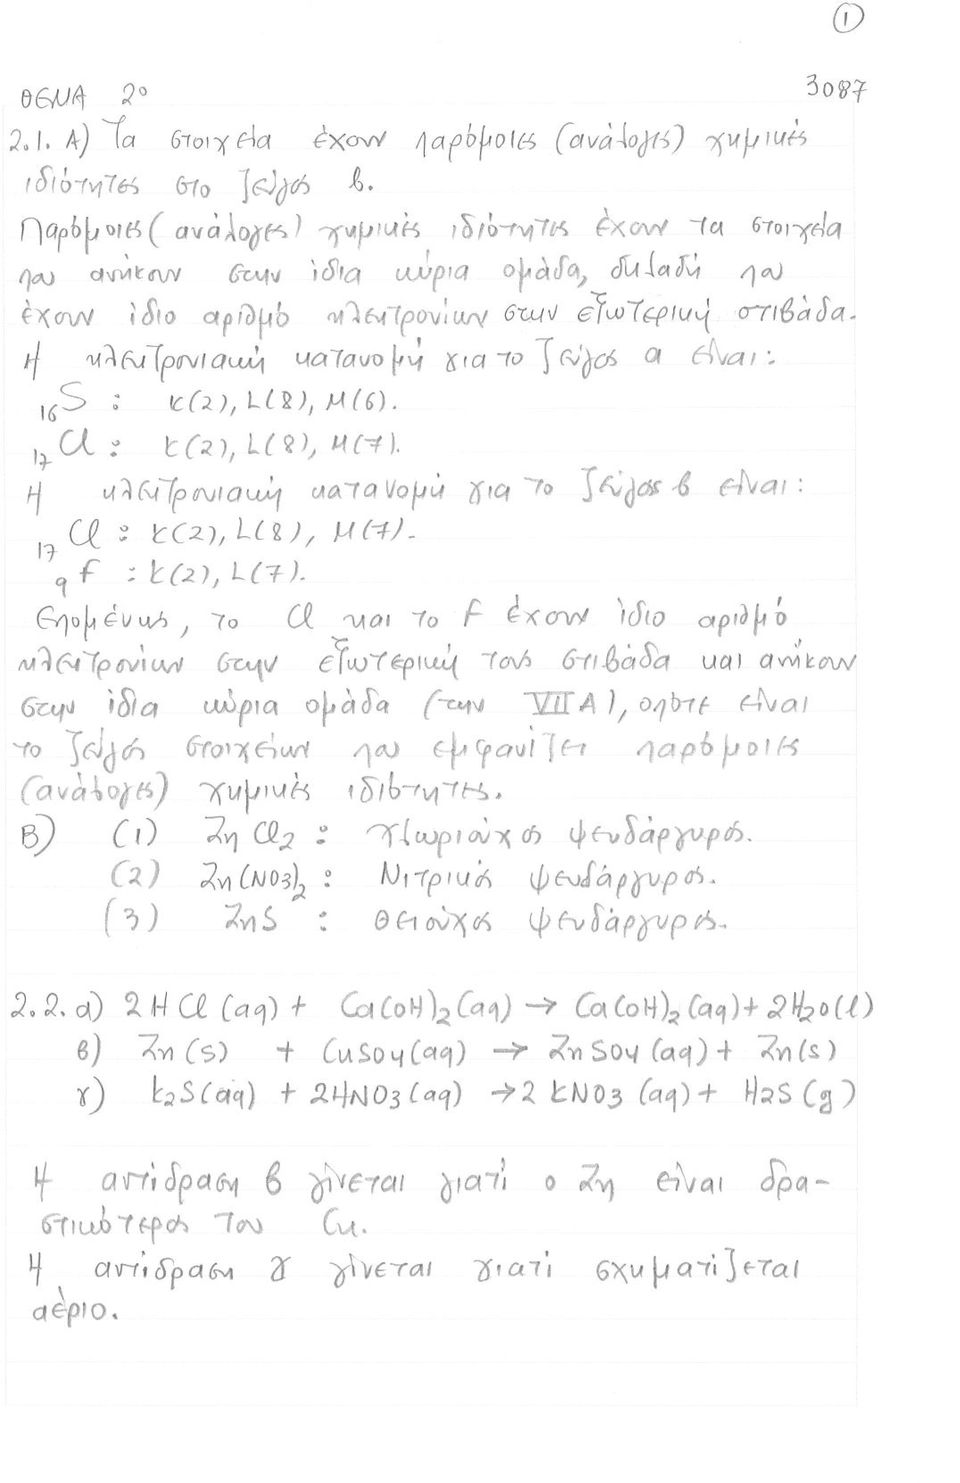 1
ΘΕΜΑ 2ο 3087
2.1. Α) Τα στοιχεία έχουν παρόμοιες (ανάλογες) χημικές
ιδιότητες στο ζεύγος β.
Παρόμοιες (ανάλογες) χημικές ιδιότητες έχουν τα στοιχεία
που ανήκουν στην ίδια κύρια ομάδα, δηλαδή που
έχουν ίδιο αριθμό ηλεκτρονίων στην εξωτερική στιβάδα.
Η ηλεκτρονιακή κατανομή για το ζεύγος α είναι:
₁₆S : K(2), L(8), M(6).
₁₇Cl : K(2), L(8), M(7).
Η ηλεκτρονιακή κατανομή για το ζεύγος β είναι:
₁₇Cl : K(2), L(8), M(7).
₉F : K(2), L(7).
Επομένως, το Cl και το F έχουν ίδιο αριθμό
ηλεκτρονίων στην εξωτερική τους στιβάδα και ανήκουν
στην ίδια κύρια ομάδα (την VIIA), οπότε είναι
το ζεύγος στοιχείων που εμφανίζει παρόμοιες
(ανάλογες) χημικές ιδιότητες.
Β) (1) ZnCl₂ : Χλωριούχος ψευδάργυρος.
(2) Zn(NO3)₂ : Νιτρικός ψευδάργυρος.
(3) ZnS : Θειούχος ψευδάργυρος.
2.2. α) 2HCl(aq) + Ca(OH)₂(aq) → Ca(OH)₂(aq) + 2H₂O(l)
β) Zn(s) + CuSO4(aq) → ZnSO4(aq) + Zn(s)
γ) K₂S(aq) + 2HNO3(aq) → 2KNO3(aq) + H2S(g)
Η αντίδραση β γίνεται γιατί ο Zn είναι δρα-
στικότερος του Cu.
Η αντίδραση γ γίνεται γιατί σχηματίζεται
αέριο.